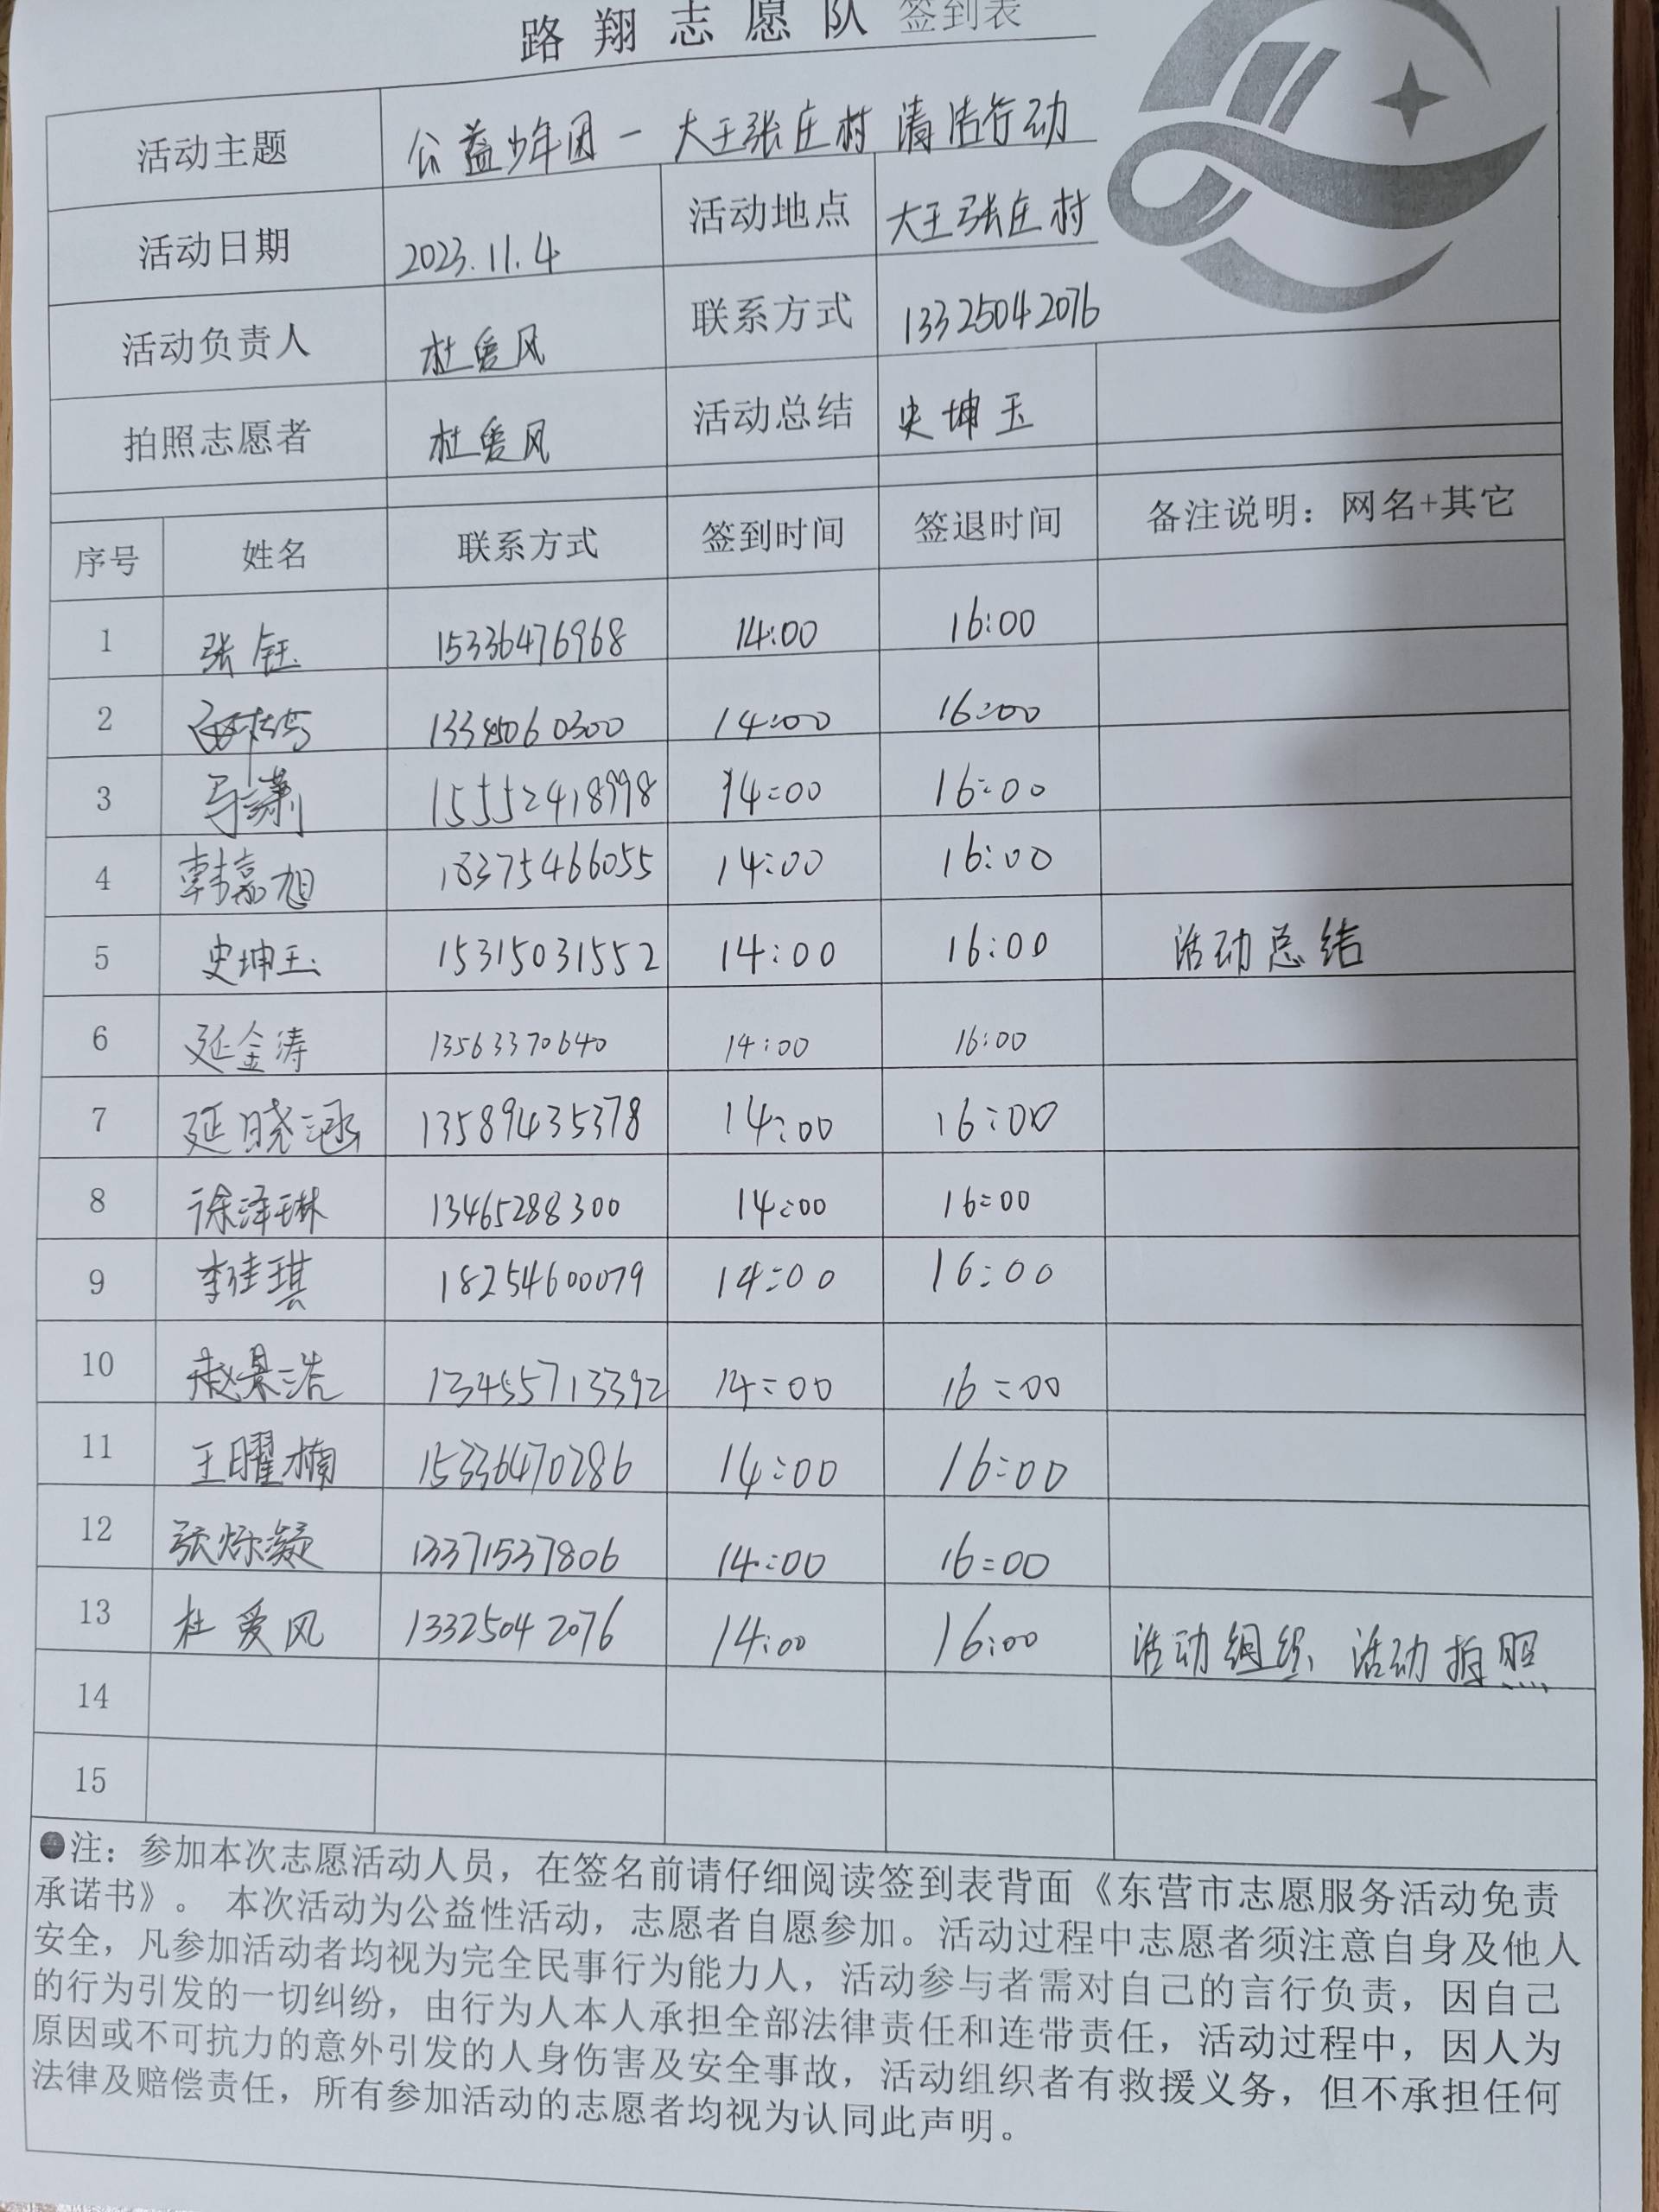 路翔志愿队 签到表
活动主题 公益少年团一大王张庄村清洁行动
活动日期 2023.11.4 活动地点 大王张庄村
活动负责人 杜爱风 联系方式 13325042076
拍照志愿者 杜爱风 活动总结 史坤玉
序号 姓名 联系方式 签到时间 签退时间 备注说明：网名+其它
1 张钰 15336476968 14:00 16:00
2 14:00 16:00
3 马潇 15552418998 14:00 16:00
4 韩嘉旭 18375466055 14:00 16:00
5 史坤玉 15315031552 14:00 16:00 活动总结
6 延金涛 13563370640 14:00 16:00
7 延晓涵 13589435378 14:00 16:00
8 徐泽琳 13465288300 14:00 16:00
9 李佳琪 18254600079 14:00 16:00
10 赵景浩 13455713392 14:00 16:00
11 王曜楠 15336470286 14:00 16:00
12 张烁凝 13371537806 14:00 16:00
13 杜爱风 13325042076 14:00 16:00 活动组织、活动拍照
14
15
●注：参加本次志愿活动人员，在签名前请仔细阅读签到表背面《东营市志愿服务活动免责
承诺书》。 本次活动为公益性活动，志愿者自愿参加。活动过程中志愿者须注意自身及他人
安全，凡参加活动者均视为完全民事行为能力人，活动参与者需对自己的言行负责，因自己
的行为引发的一切纠纷，由行为人本人承担全部法律责任和连带责任，活动过程中，因人为
原因或不可抗力的意外引发的人身伤害及安全事故，活动组织者有救援义务，但不承担任何
法律及赔偿责任，所有参加活动的志愿者均视为认同此声明。